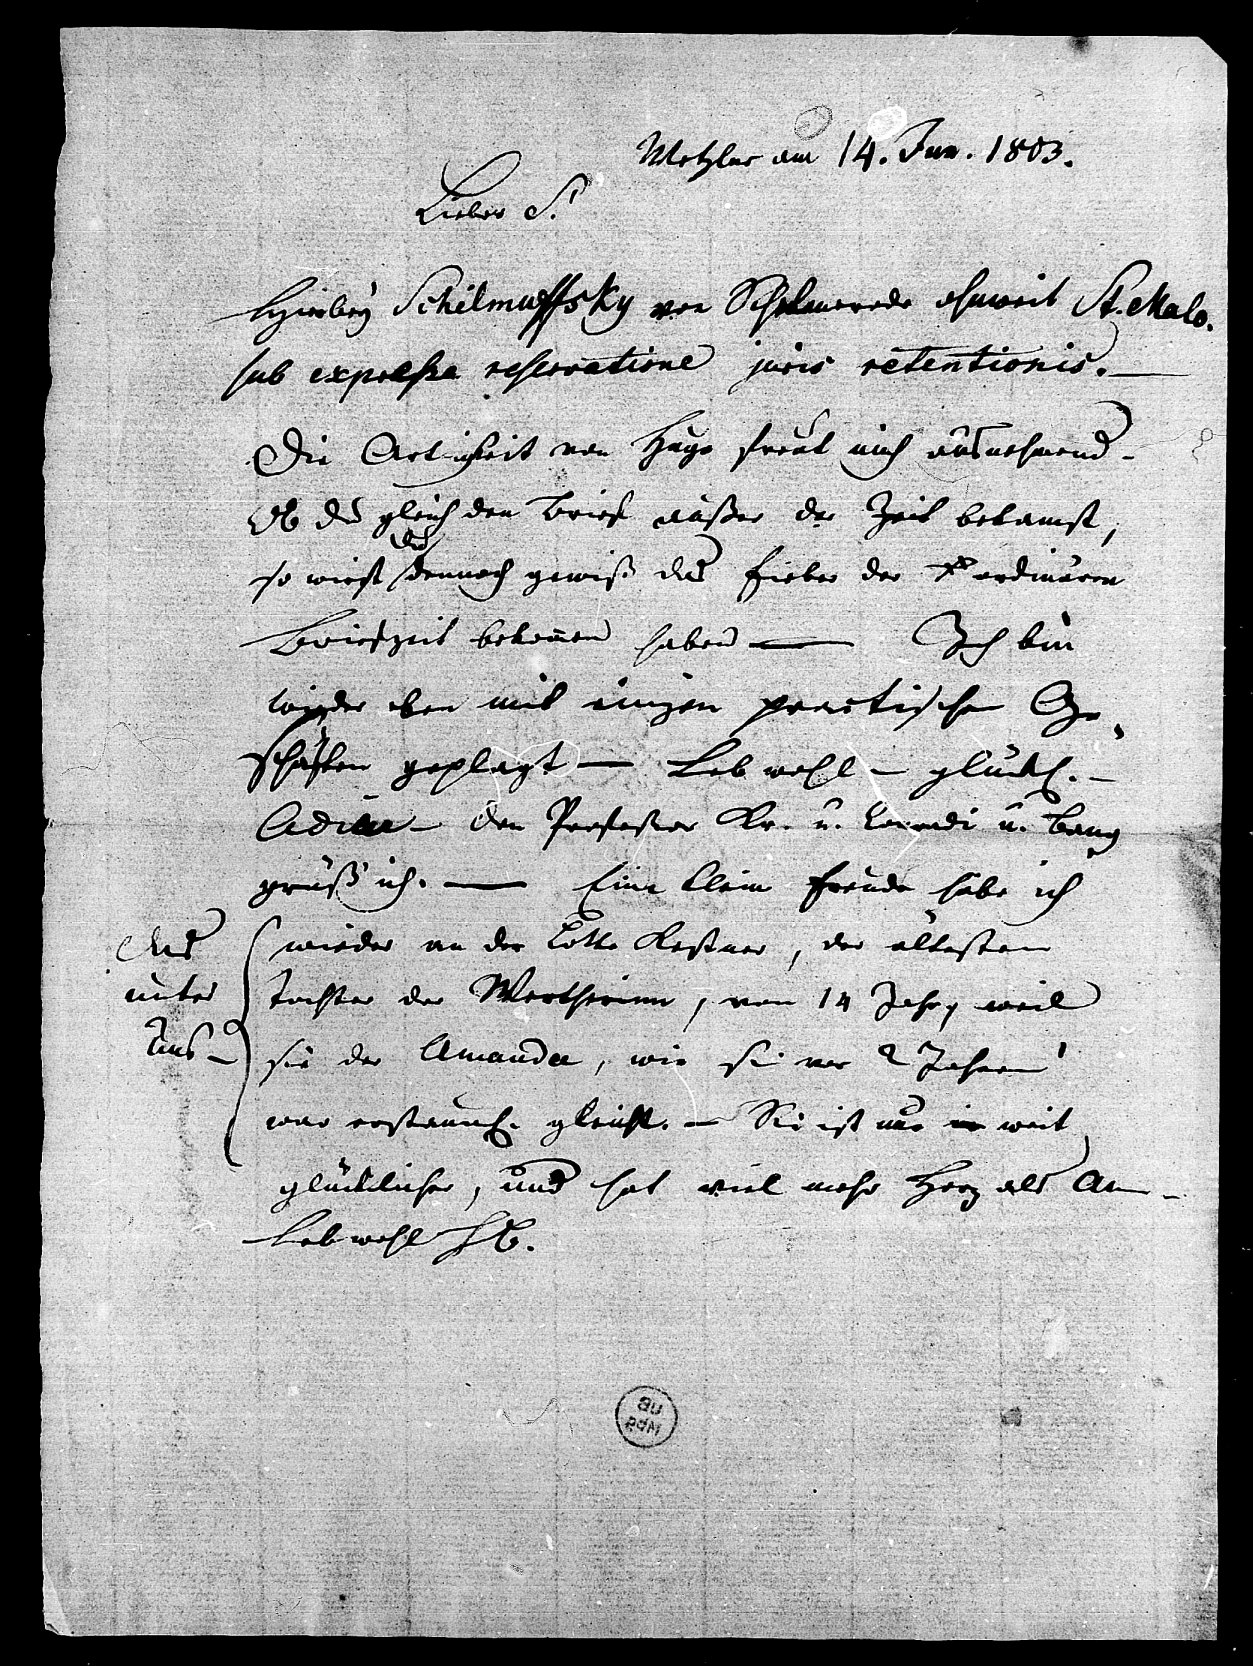 Wetzlar am 14. Jun. 1803.
Lieber S.!
Hierbey Schelmuffsky von Schelmerode ohnweit St. Malo.
sub expressa reservatione juris retentionis.—
Die Artigkeit von Hugo freut mich ausnehmend-
Ob du gleich den Brief außer der Zeit bekamst,
so wirst du dennoch gewiß das Fieber der ordinären
Briefzeit bekommen haben — Ich bin
wieder eben mit einigen practischen Ge-
schäften geplagt — Leb wohl — glückl. —
Adieu — den Professor Kr. u. Conradi u. Bang
grüß ich. — Eine kleine Freude habe ich
wieder an der Lotte Kestner, der ältesten
Tochter der Wertherinn, von 14 Jahr, weil
sie der Amanda, wie sie vor 2 Jahren
war erstaunl. gleicht. — Sie ist nur weit
glücklicher, und hat viel mehr Herz als Am-
Leb wohl
das
unter
uns —
UB
Mbg